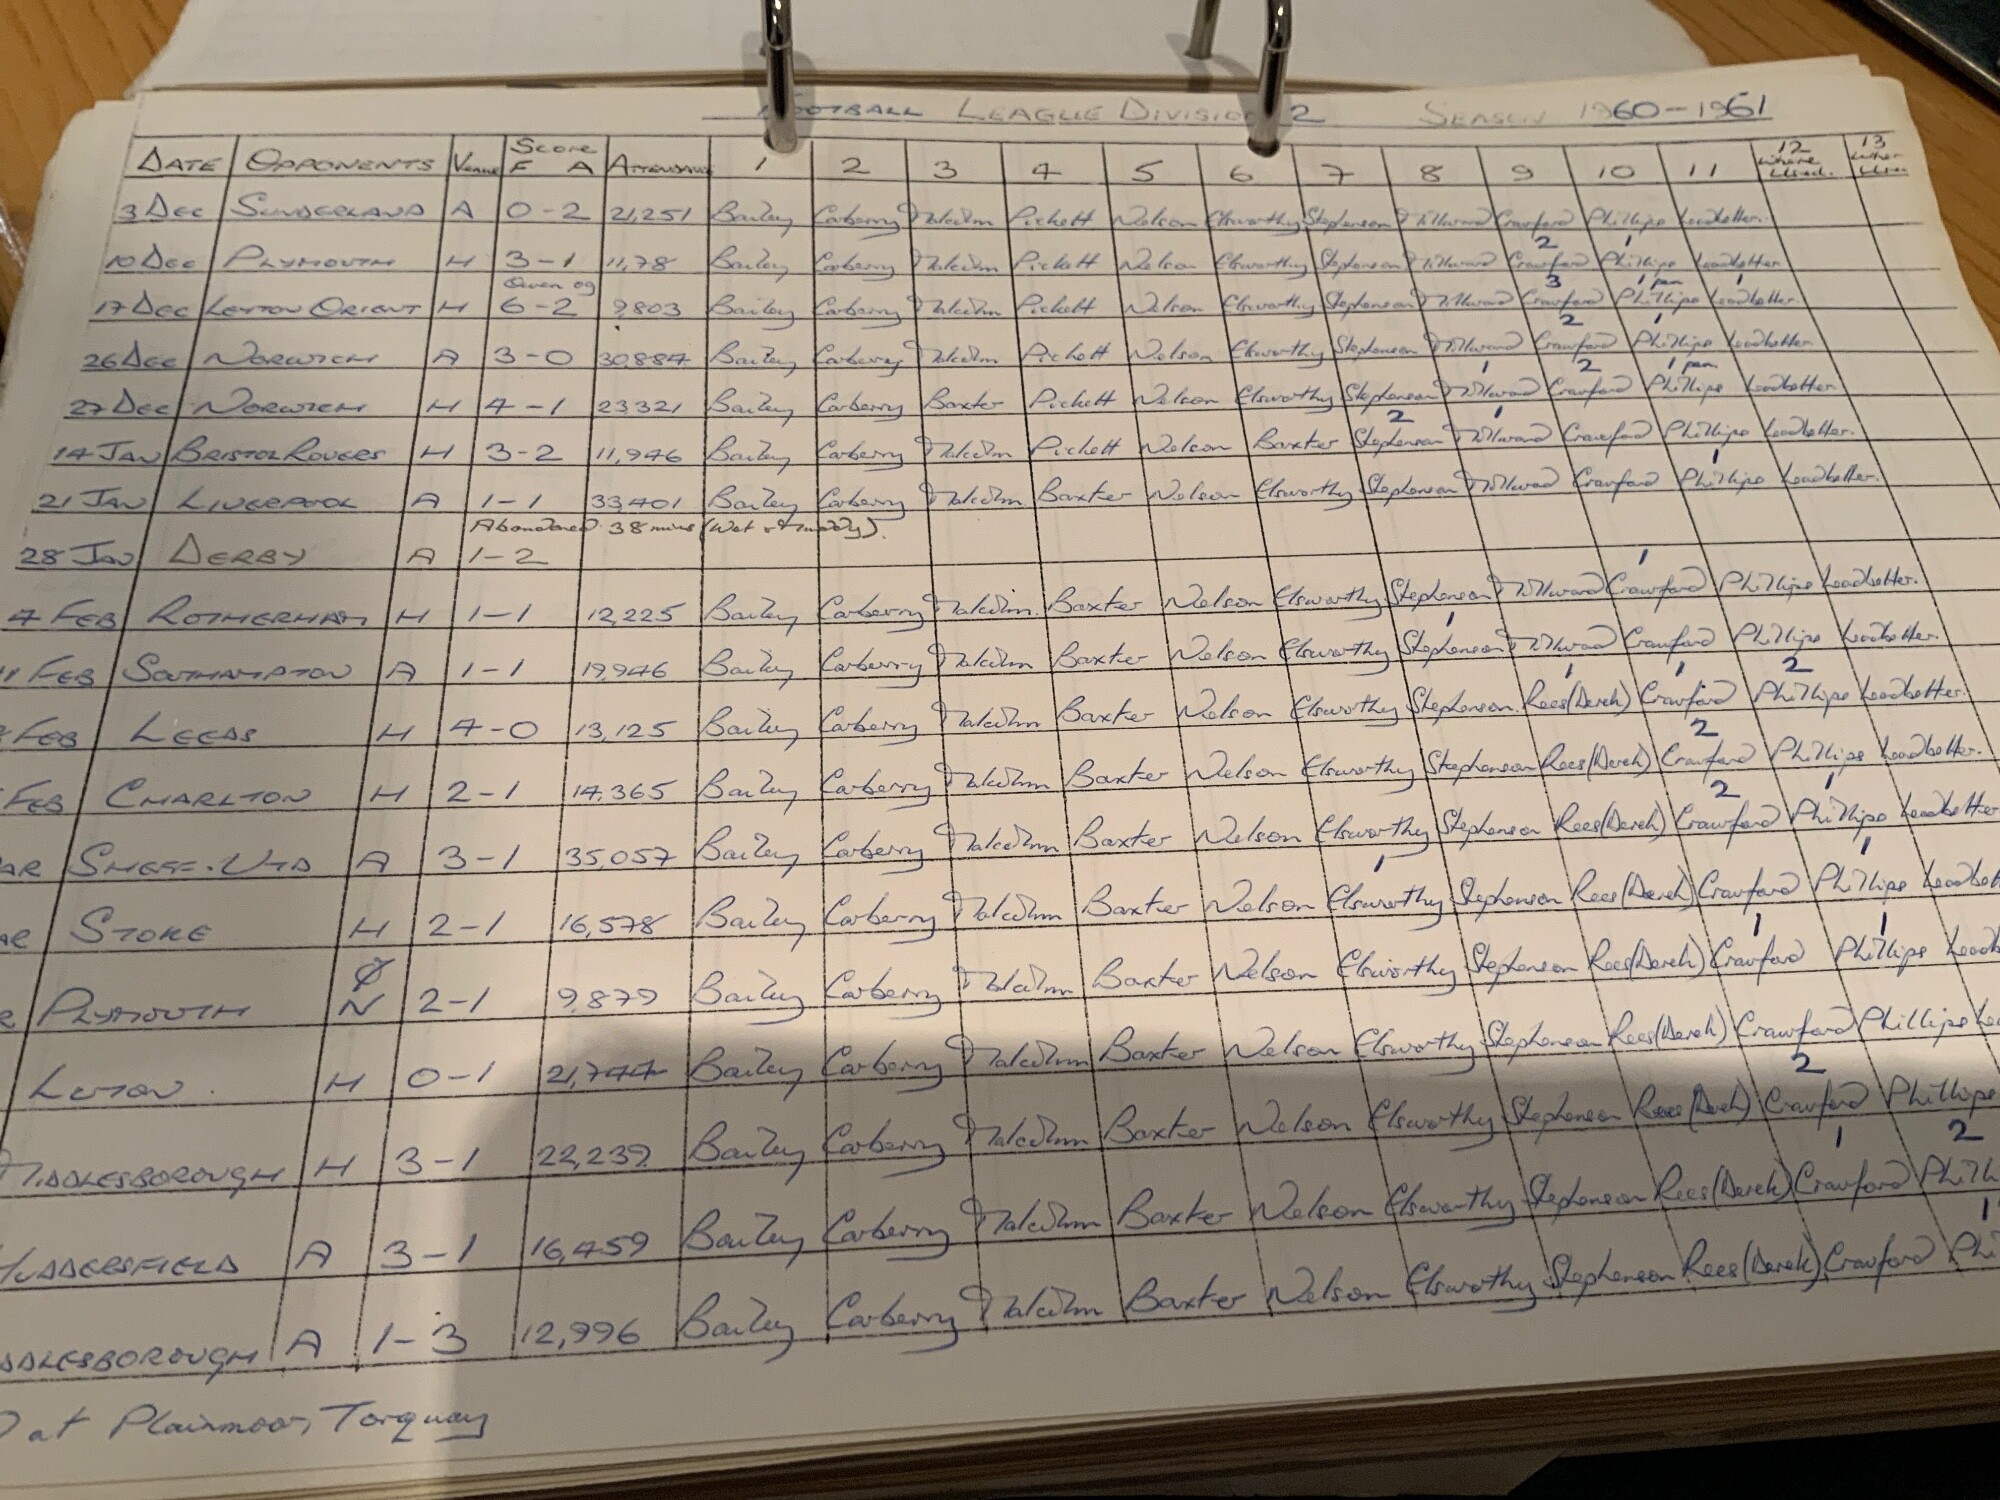 FOOTBALL LEAGUE DIVISION 2 SEASON 1960-1961
DATE OPPONENTS Venue Score F A ATTENDANCE 1 2 3 4 5 6 7 8 9 10 11 12 where Used. 13 where Used.
3 DEC SUNDERLAND A 0-2 21,251 Bailey Carberry Malcolm Pickett Nelson Elsworthy Stephenson Millward Crawford Phillips Leadbetter.
2 1
10 DEC PLYMOUTH H 3-1 11,78 Bailey Carberry Malcolm Pickett Nelson Elsworthy Stephenson Millward Crawford Phillips Leadbetter
Owen og 3 1 pen 1
17 DEC LEYTON ORIENT H 6-2 9,803 Bailey Carberry Malcolm Pickett Nelson Elsworthy Stephenson Millward Crawford Phillips Leadbetter.
2 1
26 DEC NORWICH A 3-0 30,884 Bailey Carberry Malcolm Pickett Nelson Elsworthy Stephenson Millward Crawford Phillips Leadbetter.
1 2 1 pen.
27 DEC NORWICH H 4-1 23321 Bailey Carberry Baxter Pickett Nelson Elsworthy Stephenson Millward Crawford Phillips Leadbetter.
2 1
14 JAN BRISTOL ROVERS H 3-2 11,946 Bailey Carberry Malcolm Pickett Nelson Baxter Stephenson Millward Crawford Phillips Leadbetter.
1
21 JAN LIVERPOOL A 1-1 33,401 Bailey Carberry Malcolm Baxter Nelson Elsworthy Stephenson Millward Crawford Phillips Leadbetter.
Abandoned 38 mins (Wet & muddy).
28 JAN DERBY A 1-2
1
4 FEB ROTHERHAM H 1-1 12,225 Bailey Carberry Malcolm. Baxter Nelson Elsworthy Stephenson Millward Crawford Phillips Leadbetter.
1
11 FEB SOUTHAMPTON A 1-1 19,946 Bailey Carberry Malcolm Baxter Nelson Elsworthy Stephenson Millward Crawford Phillips Leadbetter.
1 1 2
FEB LEEDS H 4-0 13,125 Bailey Carberry Malcolm Baxter Nelson Elsworthy Stephenson. Rees(Derek) Crawford Phillips Leadbetter.
2
FEB CHARLTON H 2-1 14,365 Bailey Carberry Malcolm Baxter Nelson Elsworthy Stephenson Rees(Derek) Crawford Phillips Leadbetter.
2 1
AR SHEFF. UTD A 3-1 35,057 Bailey Carberry Malcolm Baxter Nelson Elsworthy Stephenson Rees(Derek) Crawford Phillips Leadbetter
1 1
AR STOKE H 2-1 16,578 Bailey Carberry Malcolm Baxter Nelson Elsworthy Stephenson Rees(Derek) Crawford Phillips Leadbett
1 1
R PLYMOUTH N 2-1 9,879 Bailey Carberry Malcolm Baxter Nelson Elsworthy Stephenson Rees(Derek) Crawford Phillips Leadb
LUTON. H 0-1 21,744 Bailey Carberry Malcolm Baxter Nelson Elsworthy Stephenson Rees(Derek) Crawford Phillips Lea
2
MIDDLESBOROUGH H 3-1 22,239 Bailey Carberry Malcolm Baxter Nelson Elsworthy Stephenson Rees(Derek) Crawford Phillips
1 2
HUDDERSFIELD A 3-1 16,459 Bailey Carberry Malcolm Baxter Nelson Elsworthy Stephenson Rees(Derek) Crawford Phill
1
DDLESBOROUGH A 1-3 12,996 Bailey Carberry Malcolm Baxter Nelson Elsworthy Stephenson Rees(Derek) Crawford Phi
at Plainmoor, Torquay